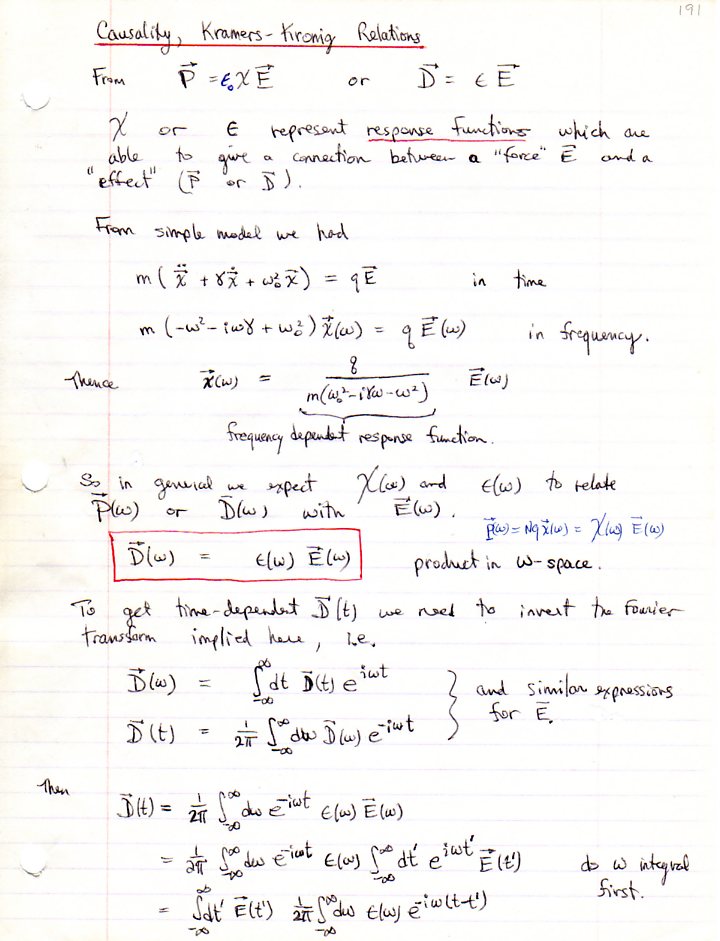 191
Causality, Kramers-Kronig Relations
From P⃗ = ε₀ χ E⃗ or D⃗ = ε E⃗
χ or ε represent response functions which are
able to give a connection between a "force" E⃗ and a
"effect" (P⃗ or D⃗).
From simple model we had
m( ẍ⃗ + γẋ⃗ + ω₀² x⃗ ) = q E⃗ in time
m (-ω² - iωγ + ω₀²) x⃗(ω) = q E⃗(ω) in frequency.
Thence x⃗(ω) = q / m(ω₀² - iγω - ω²) E⃗(ω)
frequency dependent response function.
So in general we expect χ(ω) and ε(ω) to relate
P⃗(ω) or D⃗(ω) with E⃗(ω).
P⃗(ω) = Nq x⃗(ω) = χ(ω) E⃗(ω)
D⃗(ω) = ε(ω) E⃗(ω) product in ω-space.
To get time-dependent D⃗(t) we need to invert the Fourier
transform implied here, i.e.
D⃗(ω) = ∫_{-∞}^{∞} dt D⃗(t) e^{iωt} } and similar expressions
D⃗(t) = 1/2π ∫_{-∞}^{∞} dω D⃗(ω) e^{-iωt} for E⃗.
Then D⃗(t) = 1/2π ∫_{-∞}^{∞} dω e^{-iωt} ε(ω) E⃗(ω)
= 1/2π ∫_{-∞}^{∞} dω e^{-iωt} ε(ω) ∫_{-∞}^{∞} dt' e^{iωt'} E⃗(t') do ω integral
first.
= ∫_{-∞}^{∞} dt' E⃗(t') 1/2π ∫_{-∞}^{∞} dω ε(ω) e^{-iω(t-t')}